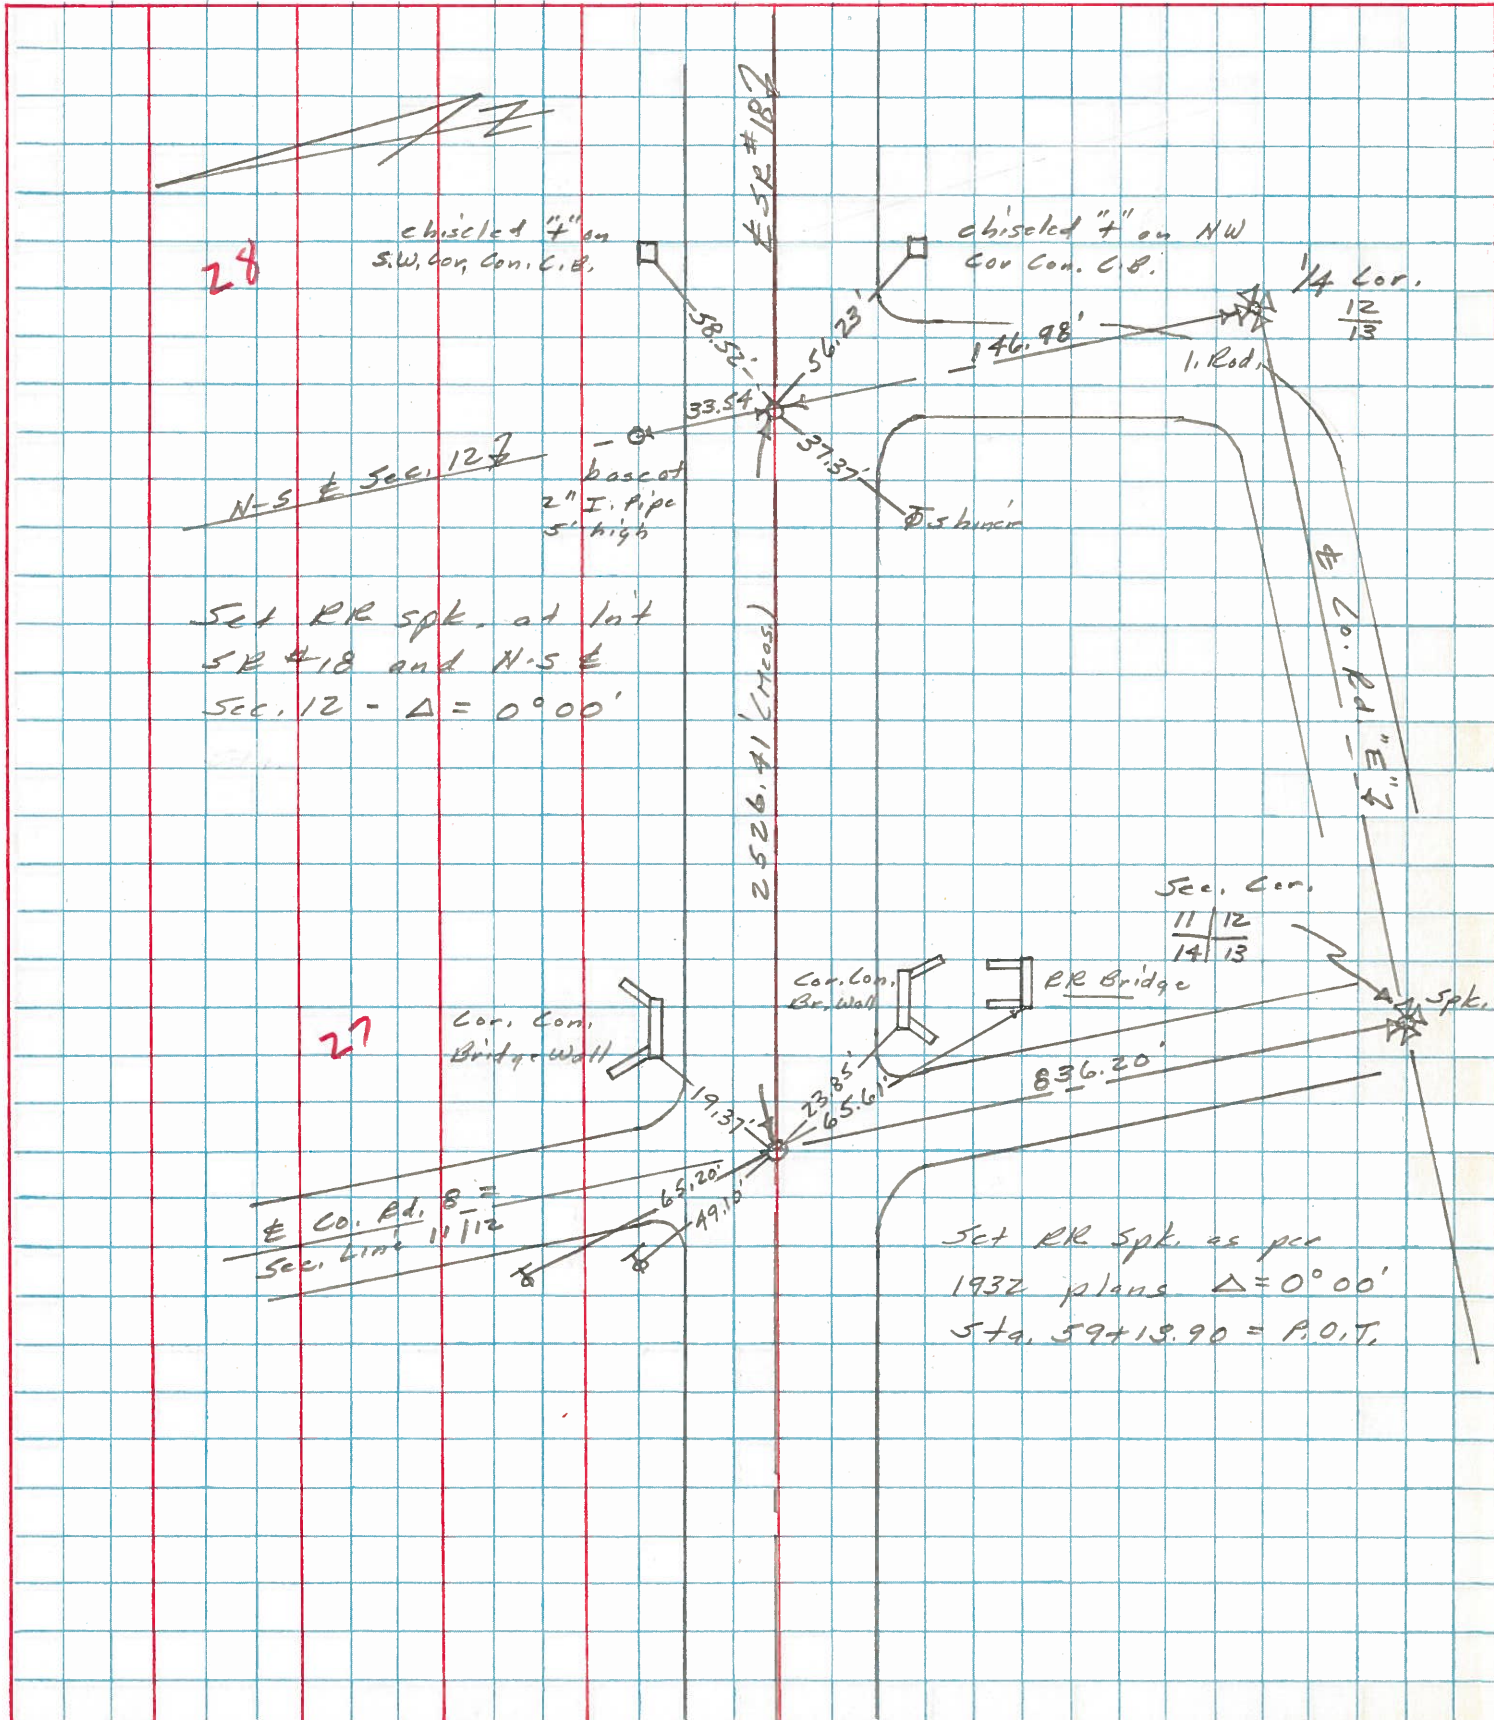 N
℄ SR #18
28
chiseled "+" on
S.W. Cor. Con. C.B.
chiseled "+" on NW
Cor Con. C.B.
1/4 Cor.
12
13
58.52'
56.23'
146.98'
I. Rod.
33.54
37.37'
N-S ℄ Sec. 12
base of
2" I. Pipe
5' high
Shiner
Set RR spk. at Int
SR #18 and N-S ℄
Sec. 12 - Δ = 0°00'
℄ Co. Rd. "E"
2526.41' (Meas.)
Sec. Cor.
11 | 12
14 | 13
Spk.
27
Cor. Con.
Bridge Wall
Cor. Con.
Br. Wall
RR Bridge
19.37'
23.85'
65.61'
836.20'
65.20'
49.10'
℄ Co. Rd. 8 =
Sec. Line 11/12
Set RR Spk. as per
1932 plans Δ = 0°00'
Sta. 59+18.90 = P.O.T.